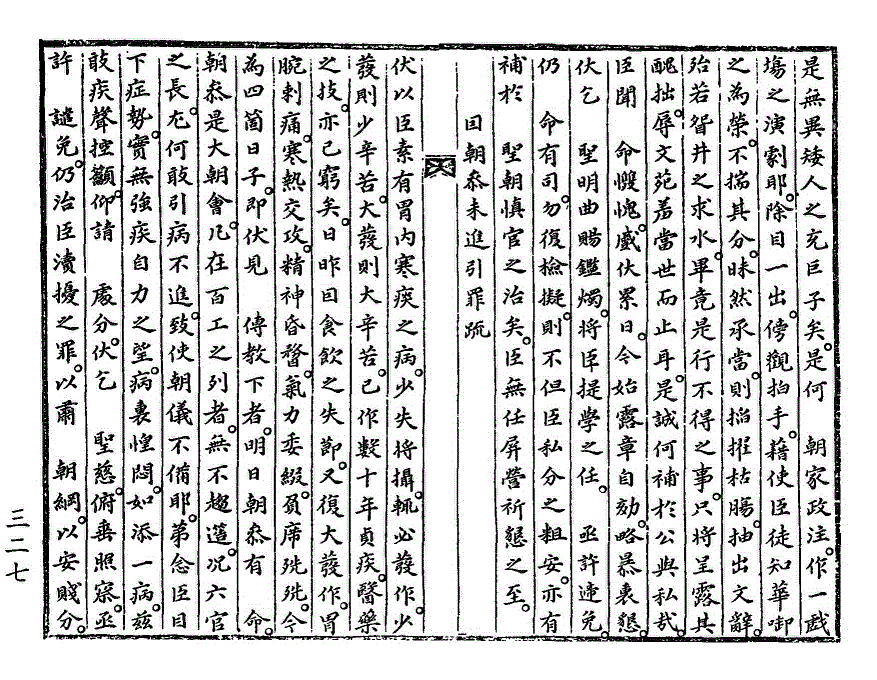 是無異矮人之充巨子矣。是何　朝家政注。作一戱
塲之演劇耶。除目一出。傍觀拍手。藉使臣徒知華啣
之為榮。不揣其分。昧然承當。則搯擢枯膓。抽出文辭。
殆若眢井之求水。畢竟是行不得之事。只將呈露其
醜拙。辱文苑羞當世而止耳。是誠何補於公與私哉。
臣聞　命慢愧。感伏累日。今始露章自劾。略暴衷懇。
伏乞　聖明曲賜鑑燭。將臣提學之任。　亟許遆免。
仍　命有司。勿復檢擬。則不但臣私分之粗安。亦有
補於　聖朝愼官之治矣。臣無任屛營祈懇之至。
因朝叅未進引罪疏
伏以臣素有胃内寒痰之病。少失將攝。輒必發作。少
發則少辛苦。大發則大辛苦。已作數十年貞疾。醫藥
之技。亦已窮矣。日昨因食飮之失節。又復大發作。胃
腕刺痛。寒熱交攻。精神昏瞀。氣力委綴。貟席洸洸。今
為四箇日子。即伏見　傳敎下者。明日朝叅有　命。
朝叅是大朝會。凡在百工之列者。無不趍蹌。况六官
之長。尤何敢引病不進。致使朝儀不備耶。第念臣目
下症勢。實無強疾自力之望。病裏惶悶。如添一病。玆
敢疾聲控籲。仰請　處分。伏乞　聖慈。俯垂照察。亟
許　譴免。仍治臣瀆擾之罪。以肅　朝綱。以安賤分。
三二七